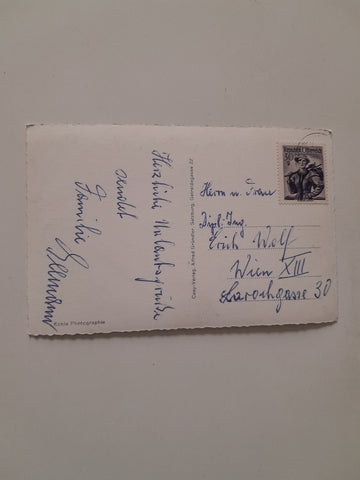 Herzliche Urlaubsgrüße
sendet
Familie
Echte Photographie
Cosy-Verlag, Alfred Gründler, Salzburg, Getreidegasse 22
Herrn u. Frau
Dipl. Ing.
Erich Wolf
Wien XIII
Larochgasse 30